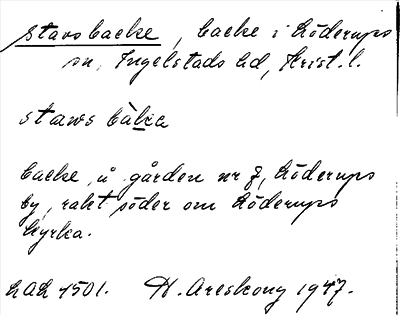 Stavsbacke, backe i Löderups
sn, Ingelstads hd, Krist. l.
stavvs bàka
backe å gården nr 7, Löderups
by, rakt söder om Löderups
kyrka.
LAL 1501. H. Areskoug 1947.